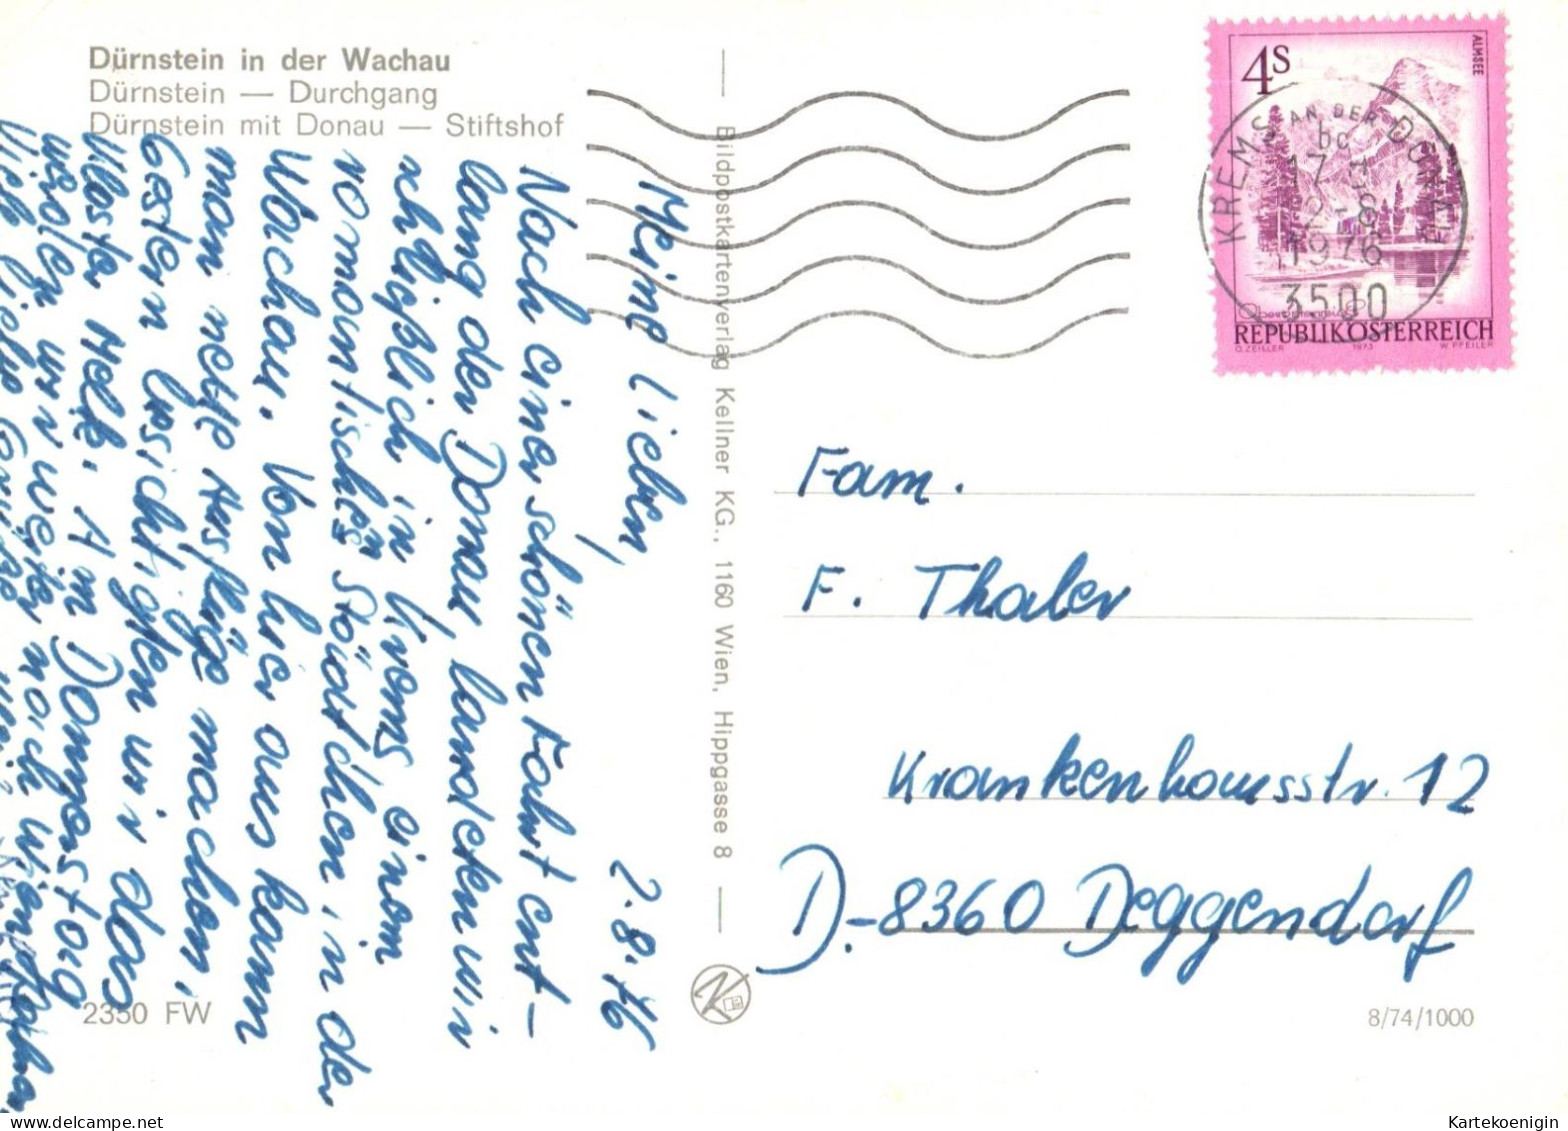 Dürnstein in der Wachau
Dürnstein — Durchgang
Dürnstein mit Donau — Stiftshof
Bildpostkartenverlag Kellner KG., 1160 Wien, Hippgasse 8
2350 FW
8/74/1000
4S
ALMSEE
REPUBLIK ÖSTERREICH
O. ZEILLER 1973 W. PFEILER
KREMS AN DER DONAU
bc
17
2-8
1976
3500
2.8.76
Meine Lieben,
Nach einer schönen Fahrt ent-
lang der Donau, landeten wir
schließlich in Krems, einem
romantischen Städtchen in der
Wachau. Von hier aus kann
man nette Ausflüge machen,
Gestern besichtigten wir das
Kloster Melk. Am Donnerstag
wollen wir weiter nach Wien fahren
Viele liebe Grüße
Fam.
F. Thaler
Krankenhausstr. 12
D.-8360 Deggendorf
Kartekoenigin